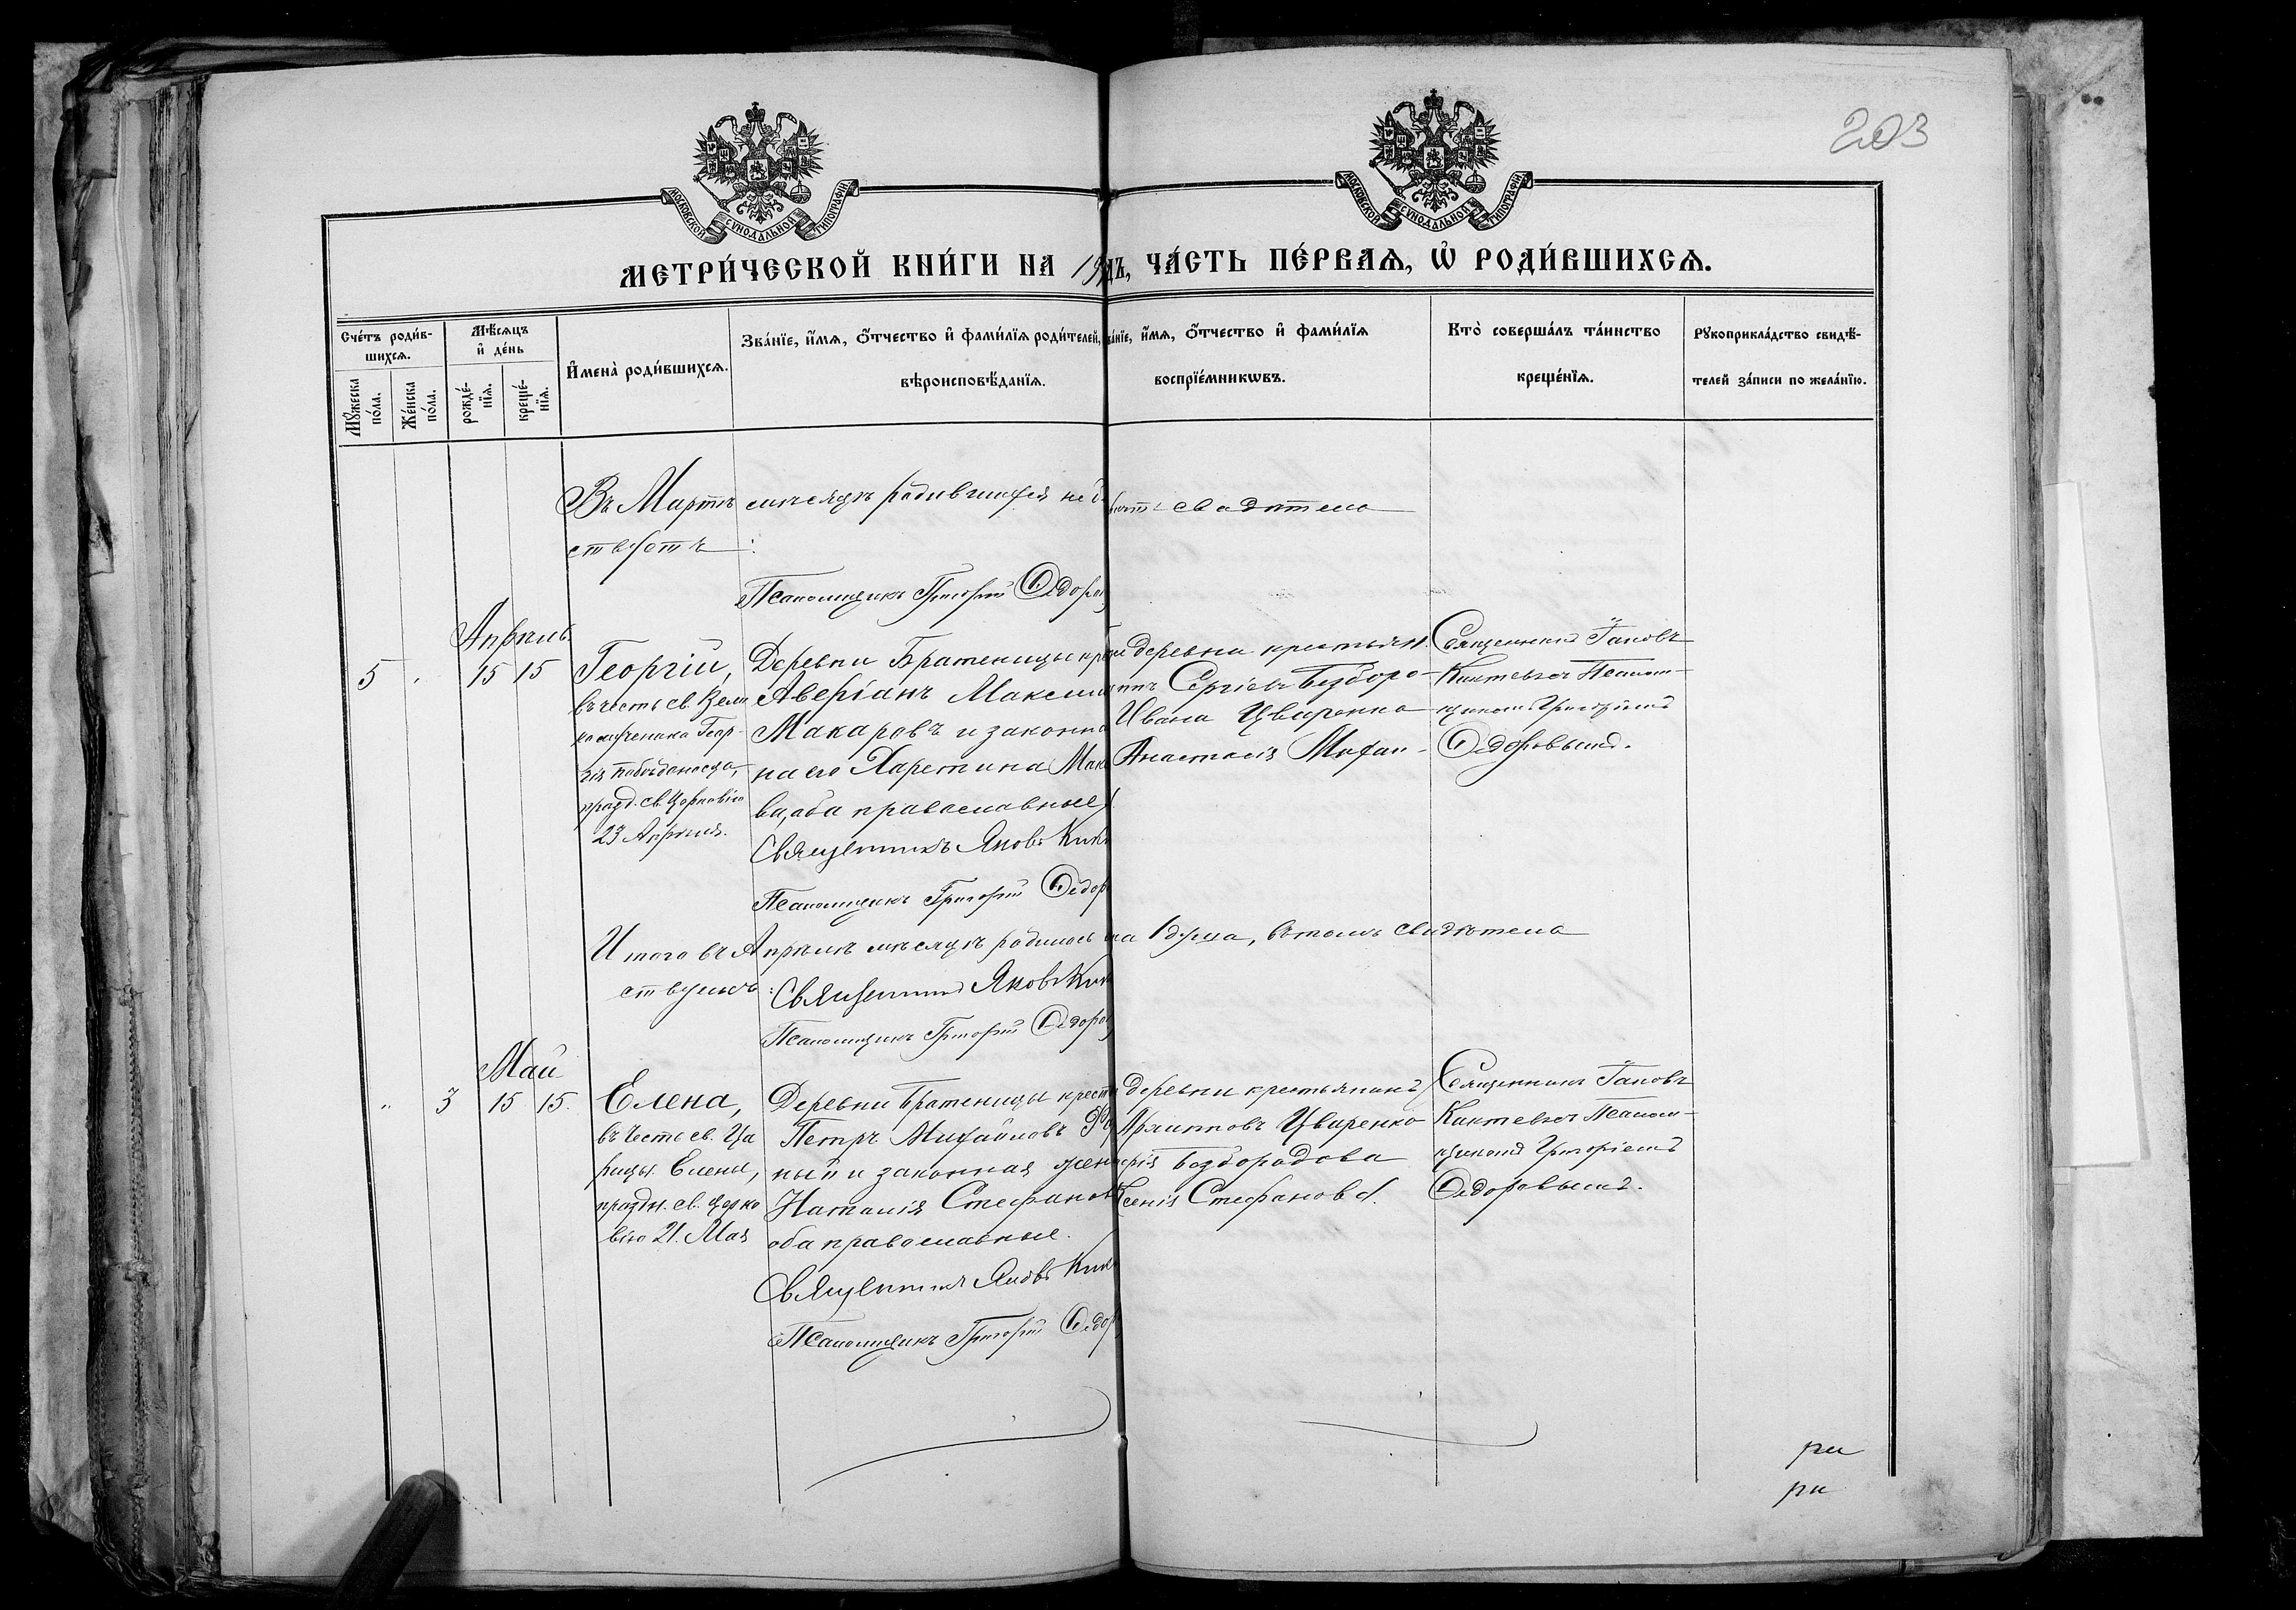 203
МОСКОВСКОЙ СУНОДАЛЬНОЙ ТИПОГРАФІИ
МОСКОВСКОЙ СУНОДАЛЬНОЙ ТИПОГРАФІИ
МЕТРИ́ЧЕСКОЙ КНИ́ГИ НА 19
дъ, ЧА́СТЬ ПЕ́РВАѦ, Ѡ РОДИ́ВШИХСѦ.
Сче́тъ роди́в-
шихсѧ.
Мꙋ́жеска по́ла.
Же́нска по́ла.
Мѣ́сѧцъ
и҆ де́нь
рожде́-
нїѧ.
креще́-
нїѧ.
И҆мена̀ роди́вшихсѧ.
Зва́нїе, и҆́мѧ, ѻ҆́тчество и҆ фами́лїѧ роди́телей,
вѣроисповѣ́данїѧ.
ва́нїе, и҆́мѧ, ѻ҆́тчество и҆ фами́лїѧ
воспрїе́мникѡвъ.
Кто̀ соверша́лъ та́инство
креще́нїѧ.
Рꙋкоприкла́дство свидѣ́-
телей за́писи по жела́нїю.
Въ Мартѣ мѣсяцѣ родившихся не б
свидѣтель
ствуютъ:
Псаломщикъ Григорій Ѳедоров
Апрѣль
5 15 15
Георгій,
въ честь св. Вели
комученика Геор-
гія Побѣдоносца,
празд. св. Церковію
23 Апрѣля.
Деревни Братеницы кре
Аверіанъ Максим
Макаровъ и законна
на его Харитина Мак
ва, оба православные
Священникъ Яковъ Кик
Псаломщикъ Григорій Ѳедор
деревни крестьян.
Сергіевъ Безборо-
Ивана Цвиренко
Анастасія Михаи-
Священникъ Іаковъ
Киктевъ съ Псалом-
щикомъ Григоріемъ
Ѳедоровымъ.
Итого въ Апрѣлѣ мѣсяцѣ родилось
на 1 душа, въ томъ свидѣтель
ствуемъ: Священникъ Яковъ Кик
Псаломщикъ Григорій Ѳедоров
Май
" 3 15 15.
Елена,
въ честь св. Ца
рицы Елены,
праздн. св. Церко
вію 21. Мая
Деревни Братеницы крест
Петръ Михайловъ
ный и законная жен
Наталія Стефанов
оба православные.
Священникъ Яковъ Кик
Псаломщикъ Григорій Ѳедор
деревни крестьянинъ
Цвиренко
Безбородова
Ксенія Стефанова.
Священникъ Іаковъ
Киктевъ съ Псалом-
щикомъ Григоріемъ
Ѳедоровымъ.